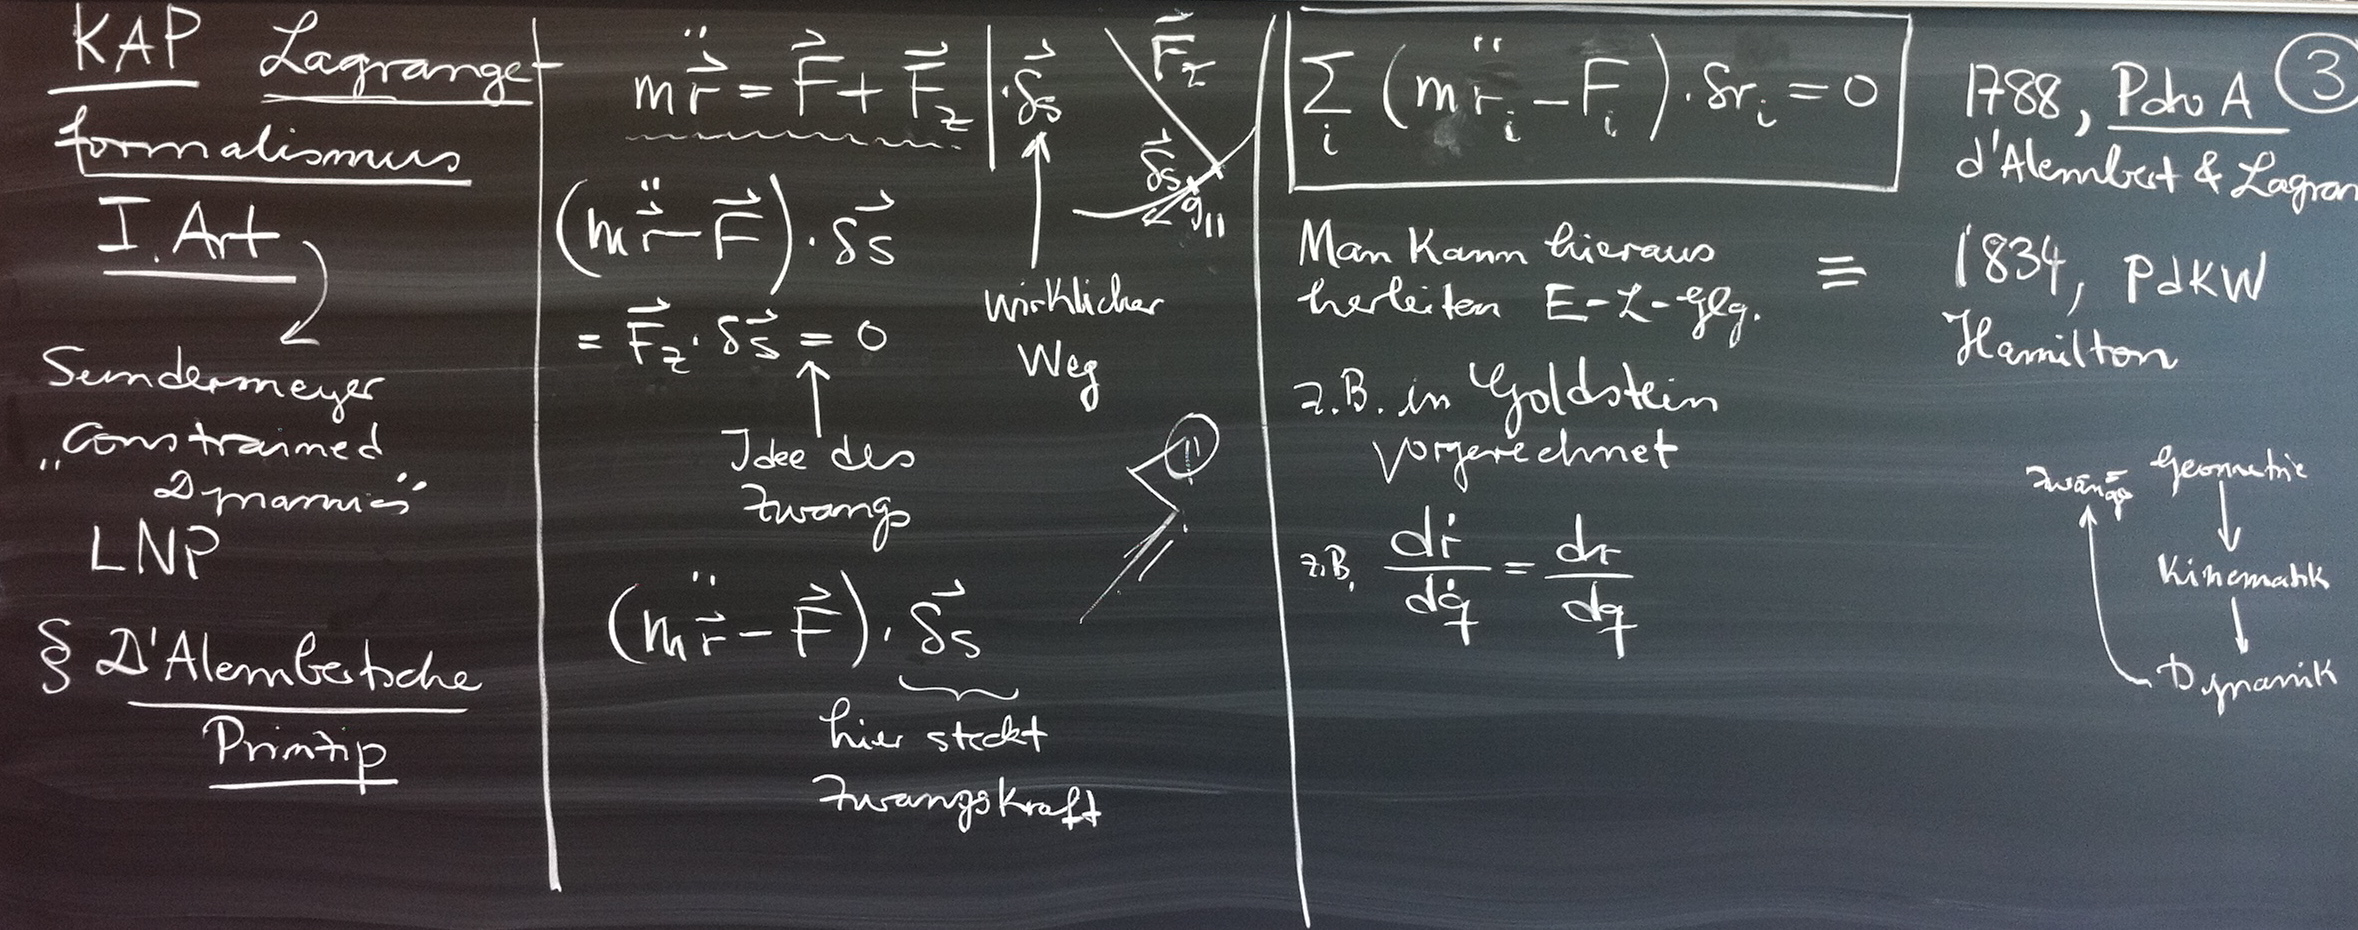 KAP Lagrange-
formalismus
I. Art
Sundermeyer
„Constrained
Dynamics"
LNP
§ D'Alembertsche
Prinzip
m r̈⃗ = F⃗ + F⃗_z | · δs⃗
(m r̈⃗ − F⃗) · δs⃗
= F⃗_z · δs⃗ = 0
Idee des
Zwangs
wirklicher
Weg
F⃗_z
δs⃗
g_||
(m r̈⃗ − F⃗) · δs⃗
hier steckt
Zwangskraft
∑_i (m r̈_i − F_i) · δr_i = 0
Man kann hieraus
herleiten E-L-Glg.
z.B. in Goldstein
vorgerechnet
z.B. dṙ/dq̇ = dr/dq
1788, PdvA ③
d'Alembert & Lagran
≡ 1834, PdKW
Hamilton
Zwangs Geometrie
↓
Kinematik
↓
Dynamik